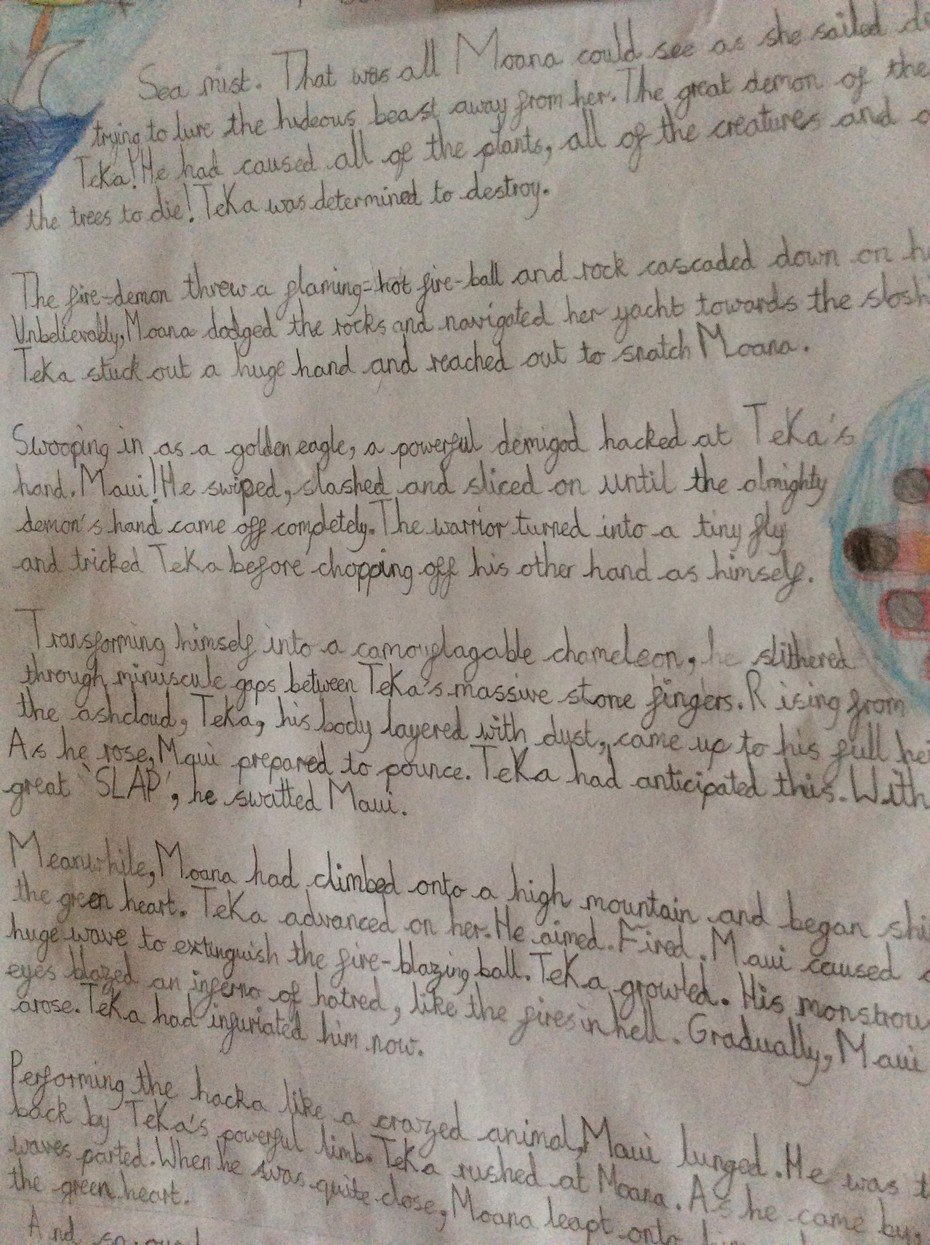 Sea mist. That was all Moana could see as she sailed
trying to lure the hideous beast away from her. The great demon of the
TeKa! He had caused all of the plants, all of the creatures and
the trees to die! TeKa was determined to destroy.
The fire-demon threw a flaming-hot fire-ball and rock cascaded down on
Unbelievably, Moana dodged the rocks and navigated her yacht towards the
TeKa stuck out a huge hand and reached out to snatch Moana.
Swooping in as a golden eagle, a powerful demigod hacked at TeKa's
hand. Maui! He swiped, slashed and sliced on until the almighty
demon's hand came off completely. The warrior turned into a tiny fly
and tricked TeKa before chopping off his other hand as himself.
Transforming himself into a camouflagable chameleon, he slithered
through miniuscule gaps between TeKa's massive stone fingers. Rising from
the ashcloud, TeKa, his body layered with dust, came up to his full
As he rose, Maui prepared to pounce. TeKa had anticipated this. With
great 'SLAP', he swatted Maui.
Meanwhile, Moana had climbed onto a high mountain and began
the green heart. TeKa advanced on her. He aimed. Fired. Maui caused
huge wave to extinguish the fire-blazing ball. TeKa growled. His
eyes blazed an inferno of hatred, like the fires in hell. Gradually, Maui
arose. TeKa had infuriated him now.
Performing the hacka like a crazed animal, Maui lunged. He was
back by TeKa's powerful limb. TeKa rushed at Moana. As he came by,
waves parted. When he was quite close, Moana leapt onto
the green heart.
And so